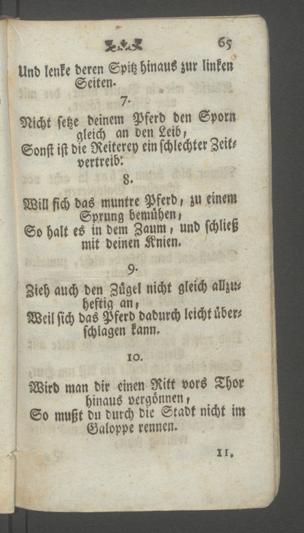 65
Und lenke deren Spitz hinaus zur linken
Seiten.
7.
Nicht setze deinem Pferd den Sporn
gleich an den Leib,
Sonst ist die Reiterey ein schlechter Zeit-
vertreib.
8.
Will sich das muntre Pferd, zu einem
Sprung bemühen,
So halt es in dem Zaum, und schließ
mit deinen Knien.
9.
Zieh auch den Zügel nicht gleich allzu-
heftig an,
Weil sich das Pferd dadurch leicht über-
schlagen kann.
10.
Wird man dir einen Ritt vors Thor
hinaus vergönnen,
So mußt du durch die Stadt nicht im
Galoppe rennen.
11.